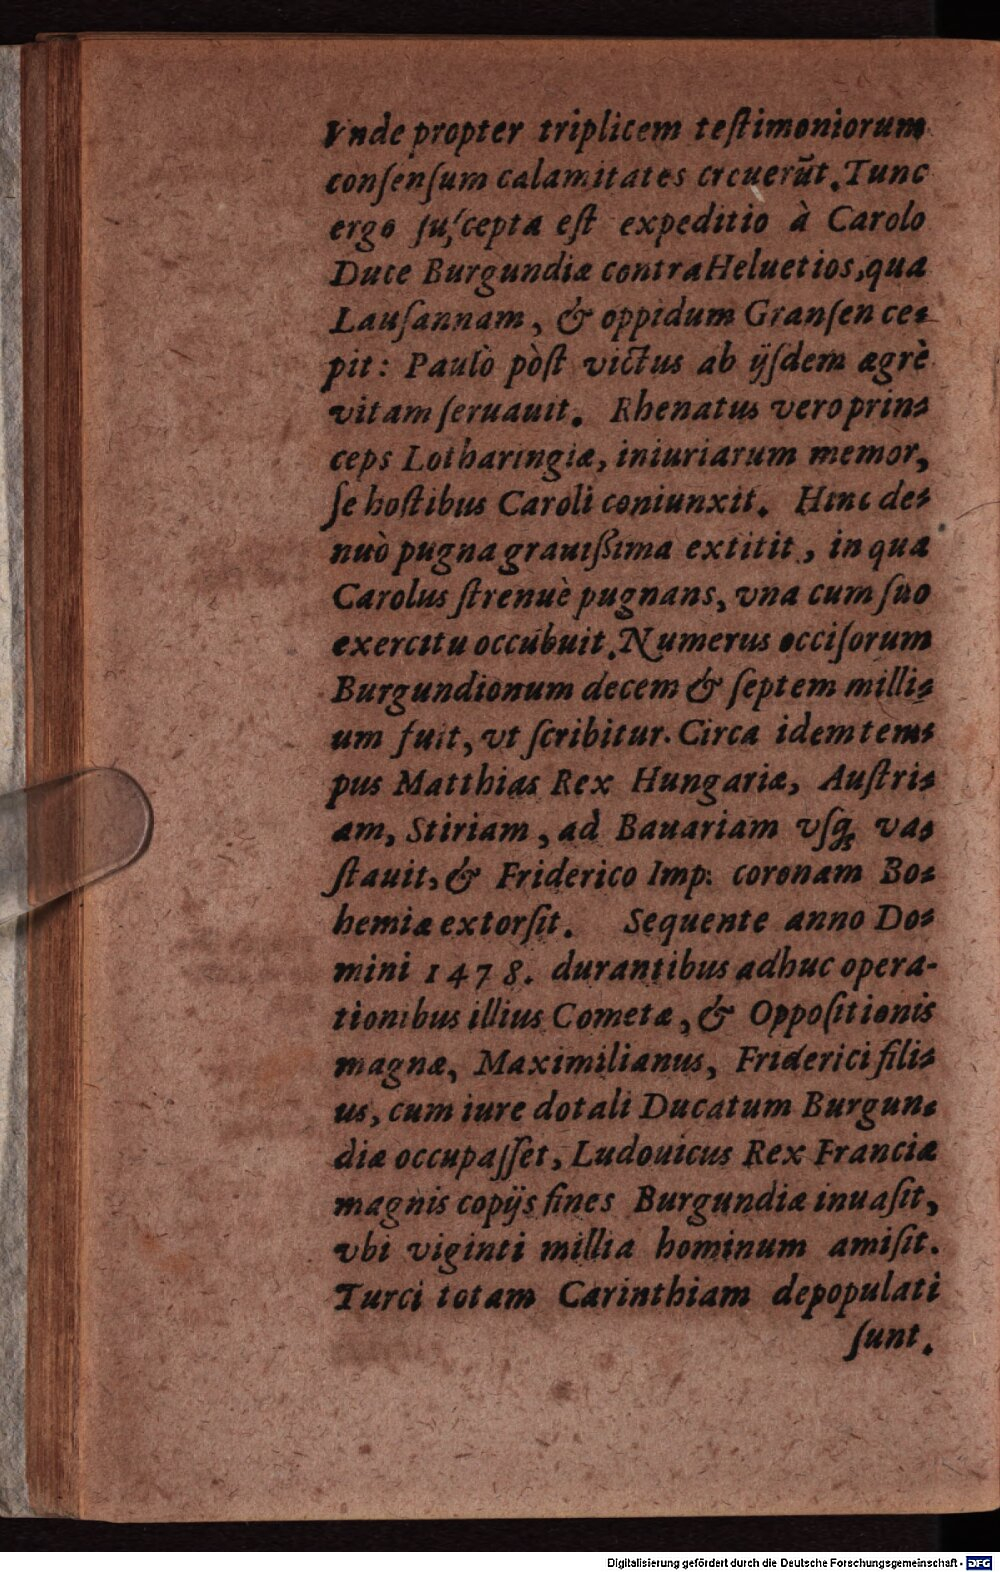 Vnde propter triplicem teſtimoniorum
conſenſum calamitates creuerūt. Tunc
ergo ſuſcepta eſt expeditio à Carolo
Duce Burgundiæ contra Heluetios, qua
Lauſannam, & oppidum Granſen ce-
pit: Paulò pòſt victus ab ijſdem ægrè
vitam ſeruauit. Rhenatus vero prin-
ceps Lotharingiæ, iniuriarum memor,
ſe hoſtibus Caroli coniunxit. Hinc de-
nuò pugna grauiſſima extitit, in qua
Carolus ſtrenuè pugnans, vna cum ſuo
exercitu occubuit. Numerus occiſorum
Burgundionum decem & ſeptem milli-
um fuit, vt ſcribitur. Circa idem tem-
pus Matthias Rex Hungariæ, Auſtri-
am, Stiriam, ad Bauariam vſq; va-
ſtauit, & Friderico Imp: coronam Bo-
hemiæ extorſit. Sequente anno Do-
mini 1478. durantibus adhuc opera-
tionibus illius Cometæ, & Oppoſitionis
magnæ, Maximilianus, Friderici fili-
us, cum iure dotali Ducatum Burgun-
diæ occupaſſet, Ludouicus Rex Franciæ
magnis copijs fines Burgundiæ inuaſit,
vbi viginti millia hominum amiſit.
Turci totam Carinthiam depopulati
ſunt.
Digitalisierung gefördert durch die Deutsche Forschungsgemeinschaft - DFG